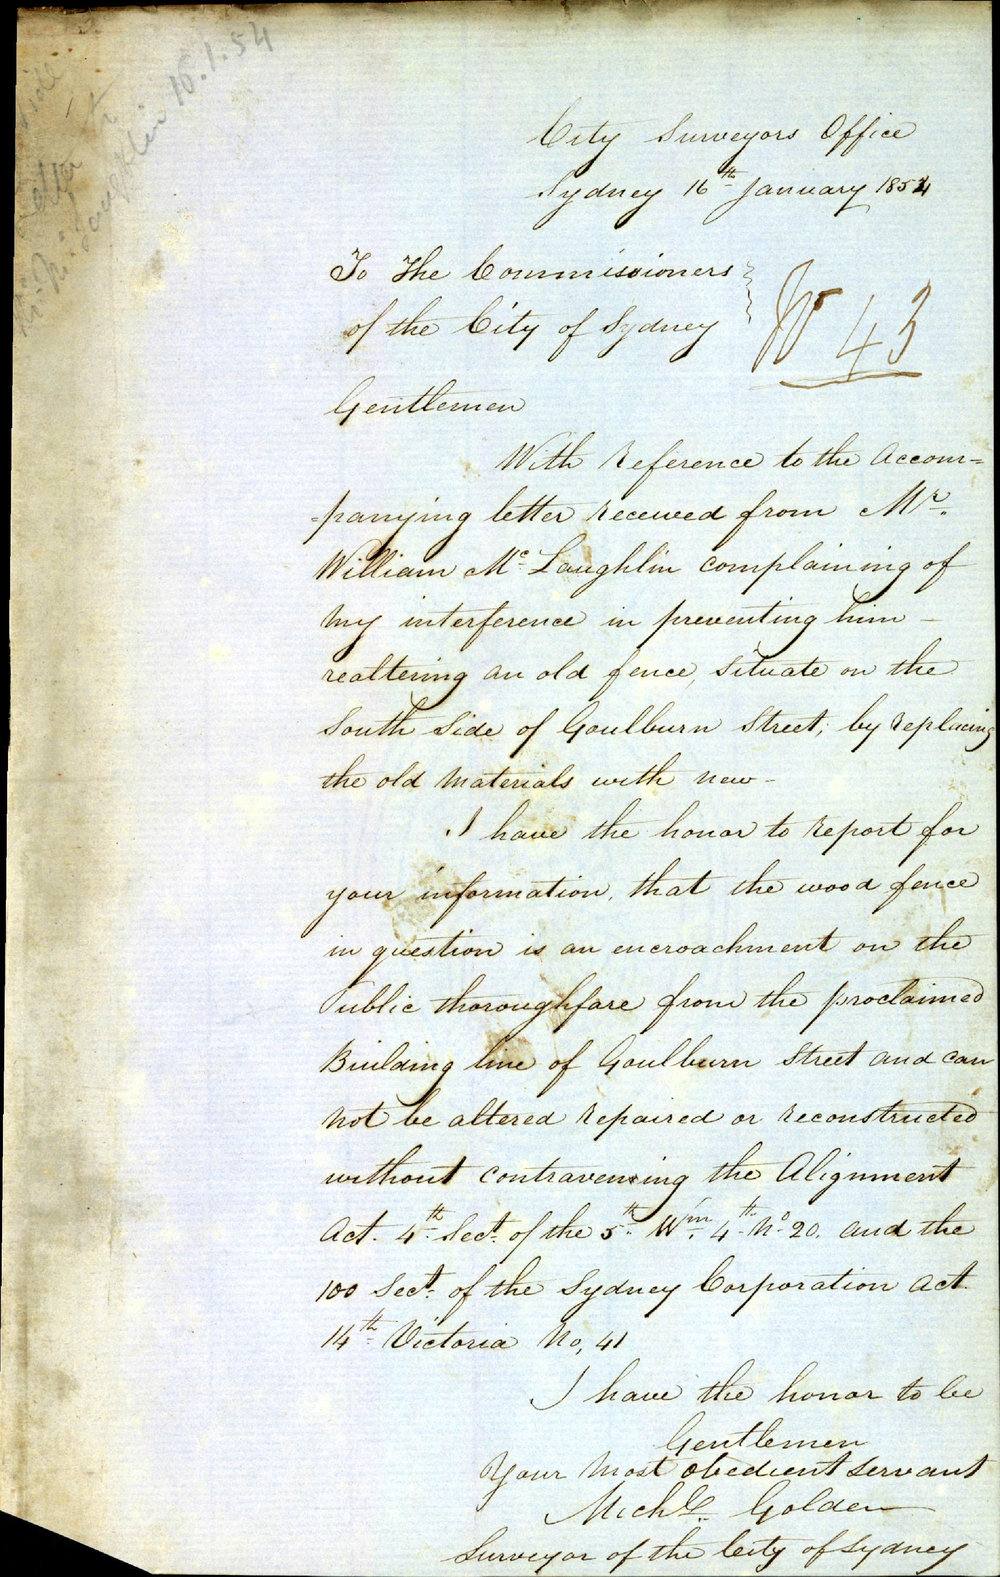 16.1.54
City Surveyors Office
Sydney 16th January 1854
To The Commissioners
of the City of Sydney
No 43
Gentlemen
With Reference to the Accom=
=panying letter received from Mr.
William Mc Laughlin complaining of
my interference in preventing him -
realtering an old fence, situate on the
South Side of Goulburn Street; by replacing
the old materials with new -
I have the honor to report for
your information, that the wood fence
in question is an encroachment on the
Public thoroughfare from the proclaimed
Building line of Goulburn Street and can
not be altered repaired or reconstructed
without contravening the Alignment
Act. 4th Sect. of the 5th Wm. 4th No. 20. and the
100 Sect. of the Sydney Corporation Act.
14th Victoria No, 41
I have the honor to be
Gentlemen
Your Most obedient servant
Michl. Golden
Surveyor of the City of Sydney